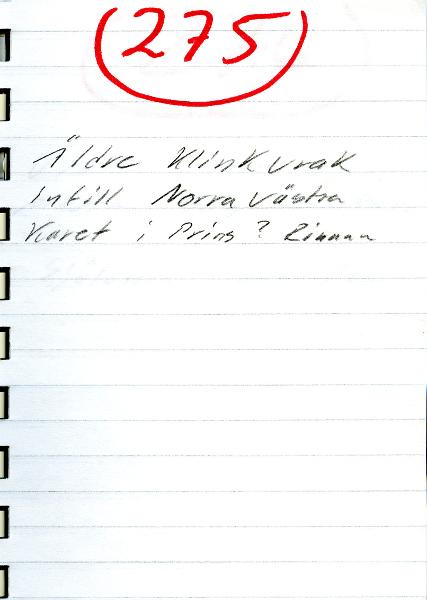 275
Äldre Klinkvrak
Intill Norra västra
Karet i Prins ? Rännan